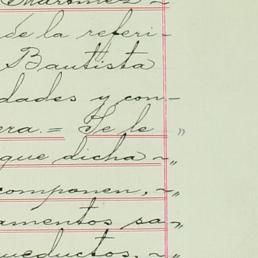 de la referi-
Bautista
dades y con-
era.= Se le "
que dicha ~"
componen, ~"
amentos sa-"
ueductos, ~"